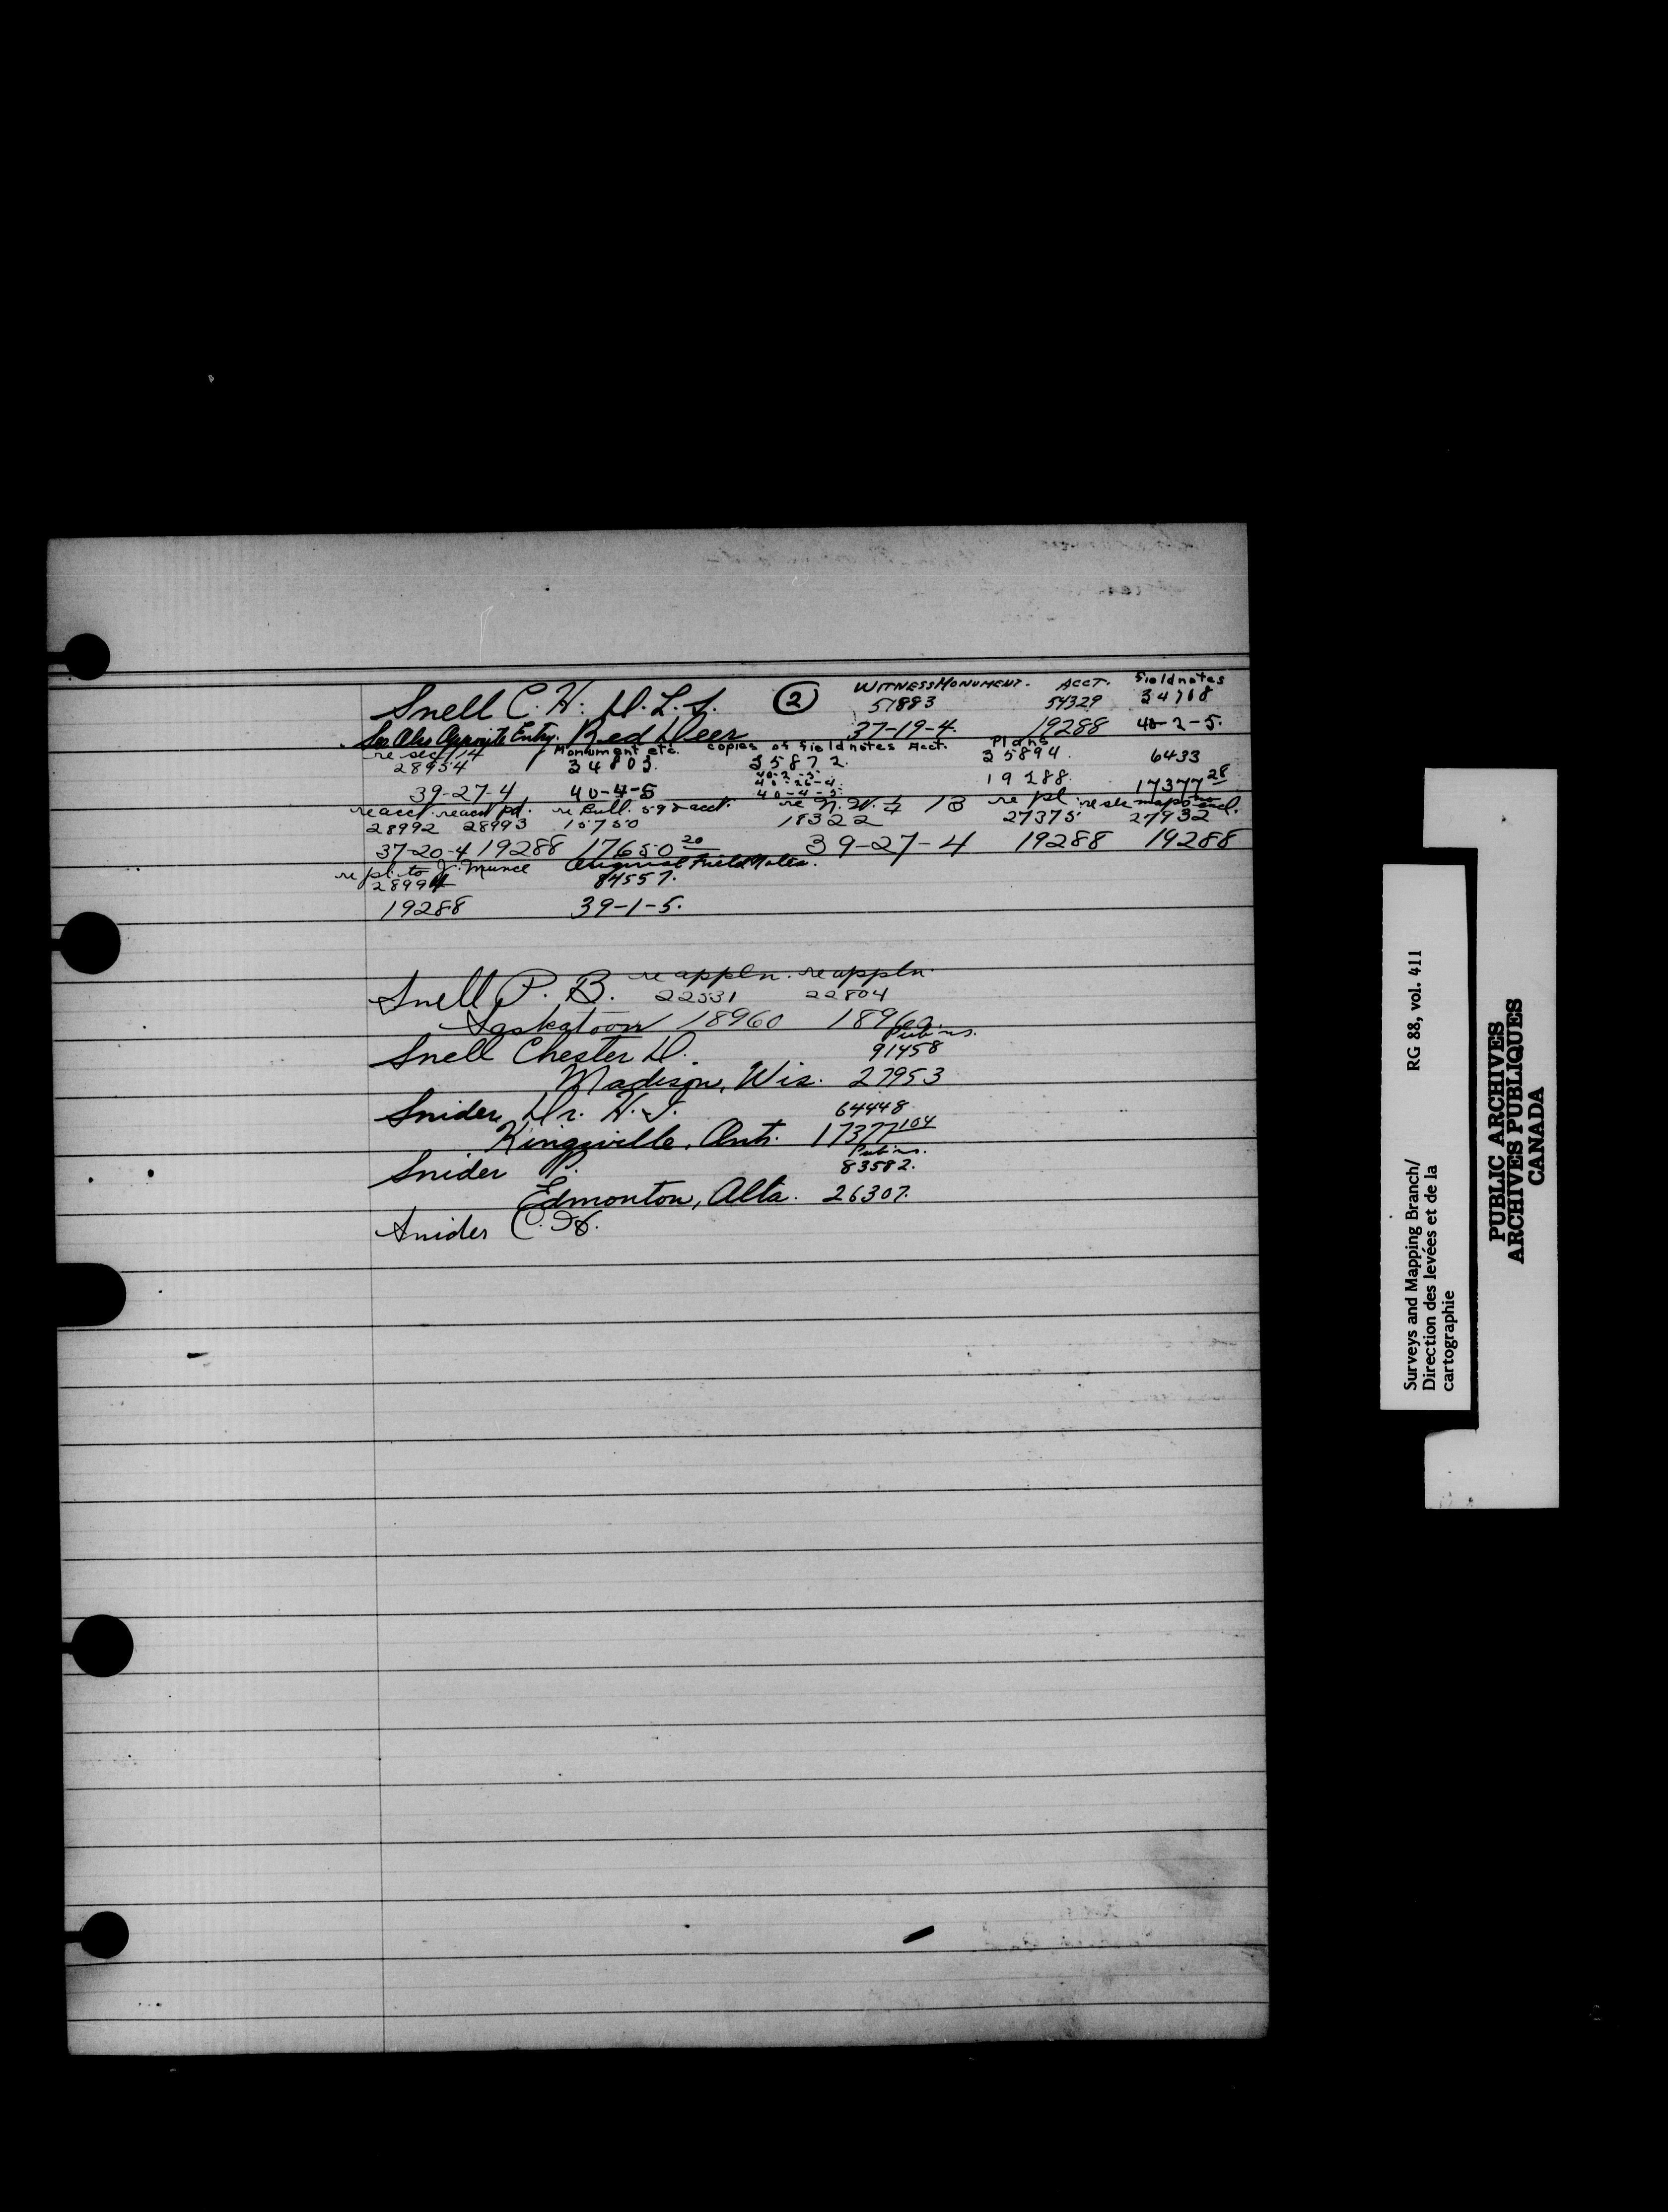 Snell C. H. D.L.S. ② WITNESS MONUMENT. ACCT. Fieldnotes
57883 54329 34718
See Also Opposite Entry. Red Deer 37-19-4. 19288 40-2-5.
re sec 14 Monument etc. copies of fieldnotes Acct. Plans
28954 34803. 35872. 35894. 6433
40-2-5.
41-26-4.
39-27-4 40-4-5 40-4-5. 19288. 17377 28
re acct. re acct pd. re Bull. 59 & acct. re N.W. ¼ 18 re pl. re sale maps encl.
28992 28993 15750 18322 27375 27932
37-20-4 19288 17650 20 39-27-4 19288 19288
re pl. to J. Munce Original Field Notes.
28994 84557.
19288 39-1-5.
Snell P. B. re appln. re appln.
22531 22804
Saskatoon 18960 18960.
Pub'ns.
Snell Chester D. 91458
Madison, Wis. 27953
Snider, Dr. H. I. 64448
Kingsville, Ont. 17377 104
Pub'ns.
Snider P. 83582.
Edmonton, Alta. 26307.
Snider C. H.
Surveys and Mapping Branch/ RG 88, vol. 411
Direction des levées et de la
cartographie
PUBLIC ARCHIVES
ARCHIVES PUBLIQUES
CANADA